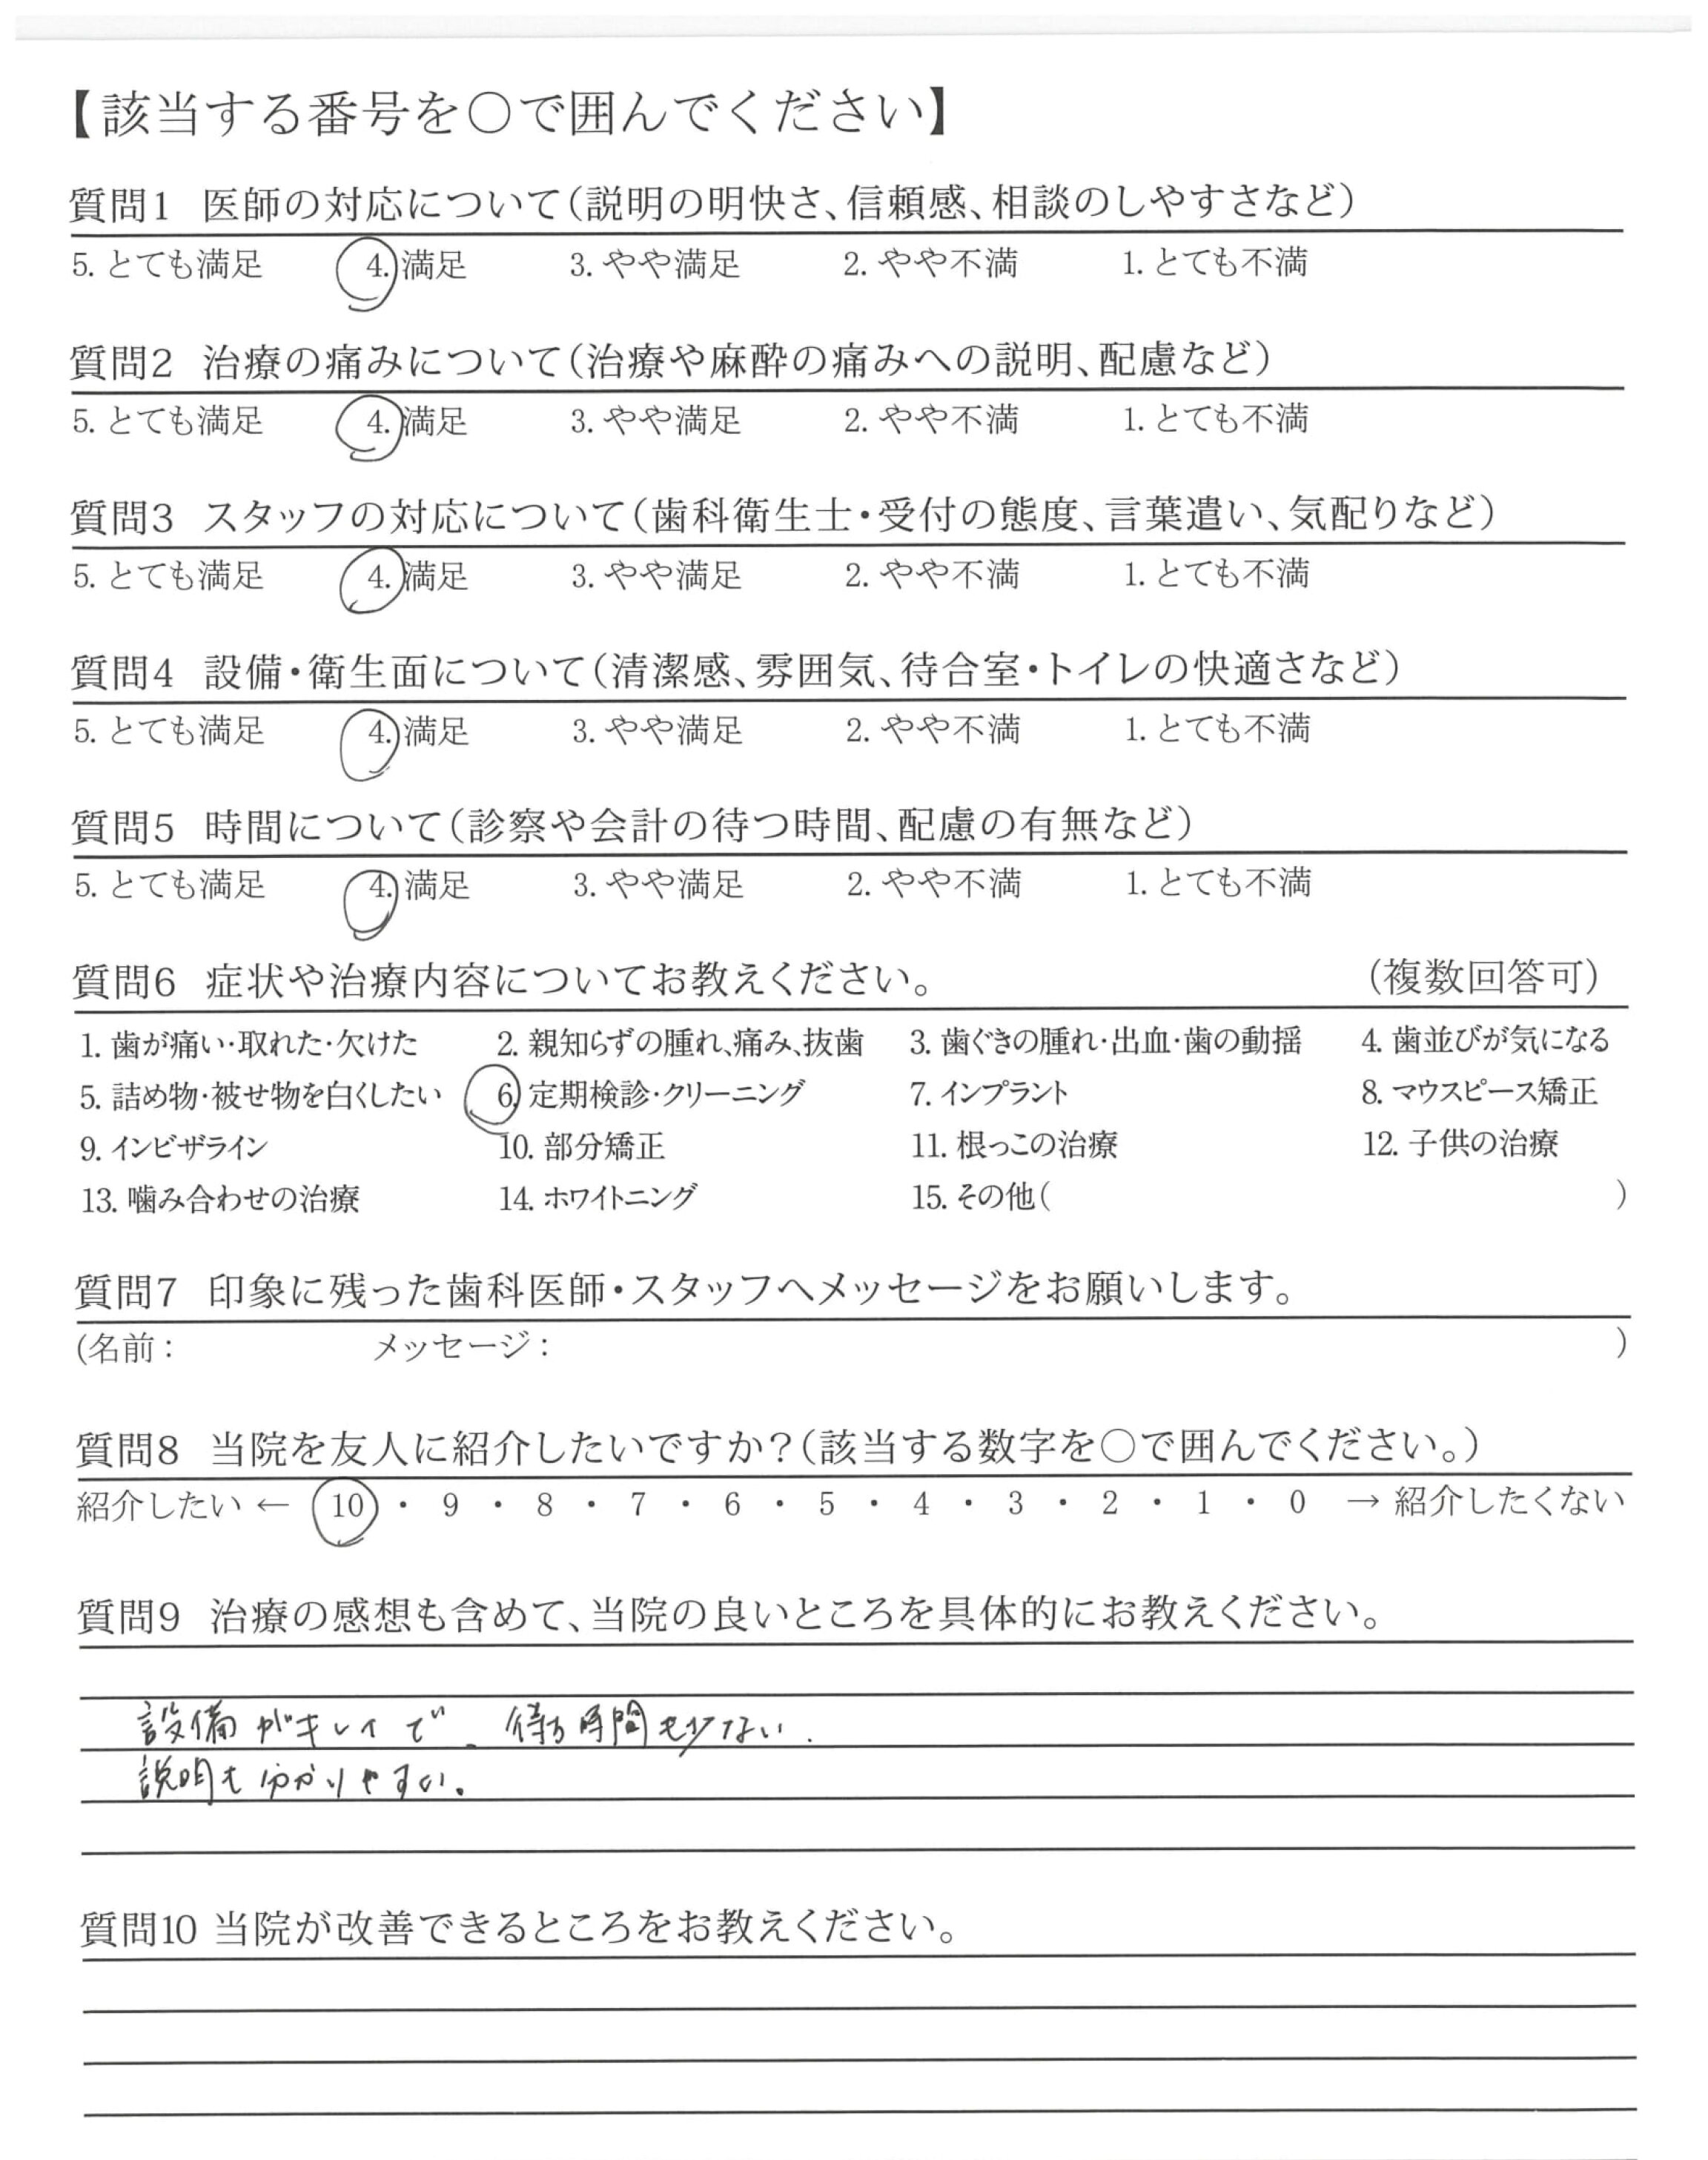 【該当する番号を〇で囲んでください】
質問1 医師の対応について(説明の明快さ、信頼感、相談のしやすさなど)
5. とても満足 4. 満足 3. やや満足 2. やや不満 1. とても不満
質問2 治療の痛みについて(治療や麻酔の痛みへの説明、配慮など)
5. とても満足 4. 満足 3. やや満足 2. やや不満 1. とても不満
質問3 スタッフの対応について(歯科衛生士・受付の態度、言葉遣い、気配りなど)
5. とても満足 4. 満足 3. やや満足 2. やや不満 1. とても不満
質問4 設備・衛生面について(清潔感、雰囲気、待合室・トイレの快適さなど)
5. とても満足 4. 満足 3. やや満足 2. やや不満 1. とても不満
質問5 時間について(診察や会計の待つ時間、配慮の有無など)
5. とても満足 4. 満足 3. やや満足 2. やや不満 1. とても不満
質問6 症状や治療内容についてお教えください。 (複数回答可)
1. 歯が痛い・取れた・欠けた 2. 親知らずの腫れ、痛み、抜歯 3. 歯ぐきの腫れ・出血・歯の動揺 4. 歯並びが気になる
5. 詰め物・被せ物を白くしたい 6. 定期検診・クリーニング 7. インプラント 8. マウスピース矯正
9. インビザライン 10. 部分矯正 11. 根っこの治療 12. 子供の治療
13. 噛み合わせの治療 14. ホワイトニング 15. その他( )
質問7 印象に残った歯科医師・スタッフへメッセージをお願いします。
(名前: メッセージ: )
質問8 当院を友人に紹介したいですか?(該当する数字を〇で囲んでください。)
紹介したい ← 10 ・ 9 ・ 8 ・ 7 ・ 6 ・ 5 ・ 4 ・ 3 ・ 2 ・ 1 ・ 0 → 紹介したくない
質問9 治療の感想も含めて、当院の良いところを具体的にお教えください。
設備がキレイで、待ち時間も少ない.
説明も分かりやすい。
質問10 当院が改善できるところをお教えください。